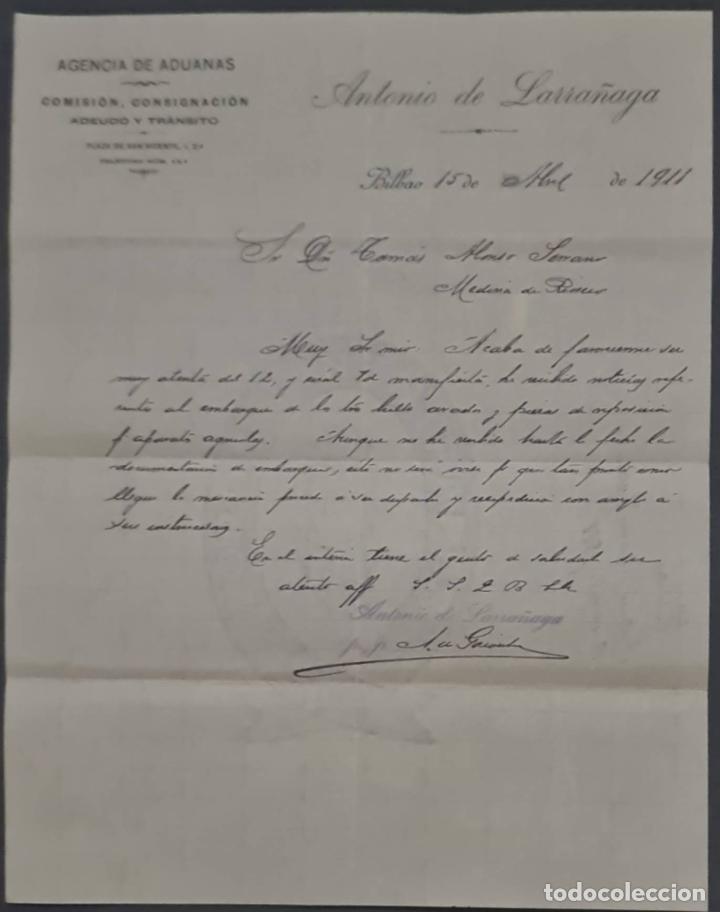 AGENCIA DE ADUANAS
COMISIÓN, CONSIGNACIÓN
ADEUDO Y TRÁNSITO
PLAZA DE SAN VICENTE, 1, 2º
TELÉFONO NÚM.
Antonio de Larrañaga
Bilbao 15 de Abril de 1911
Sr Dn Tomás Alonso Serrano
Medina de Rioseco
Muy Sr mio. Acaba de favorecerme su
muy atenta del 12, y cual Vd manifiesta, he recibido noticias refe-
rentes al embarque de los bultos arados y piezas de reposición
p aparatos agrícolas. Aunque no he recibido hasta la fecha la
documentación de embarque, esto no será p que tan pronto como
llegue la mercancía pueda ser despachada y reexpedida con arreglo á
sus instrucciones.
En el interin tiene el gusto de saludarle su
atento aff S. S. Q B
Antonio de Larrañaga
p. p.
todocoleccion